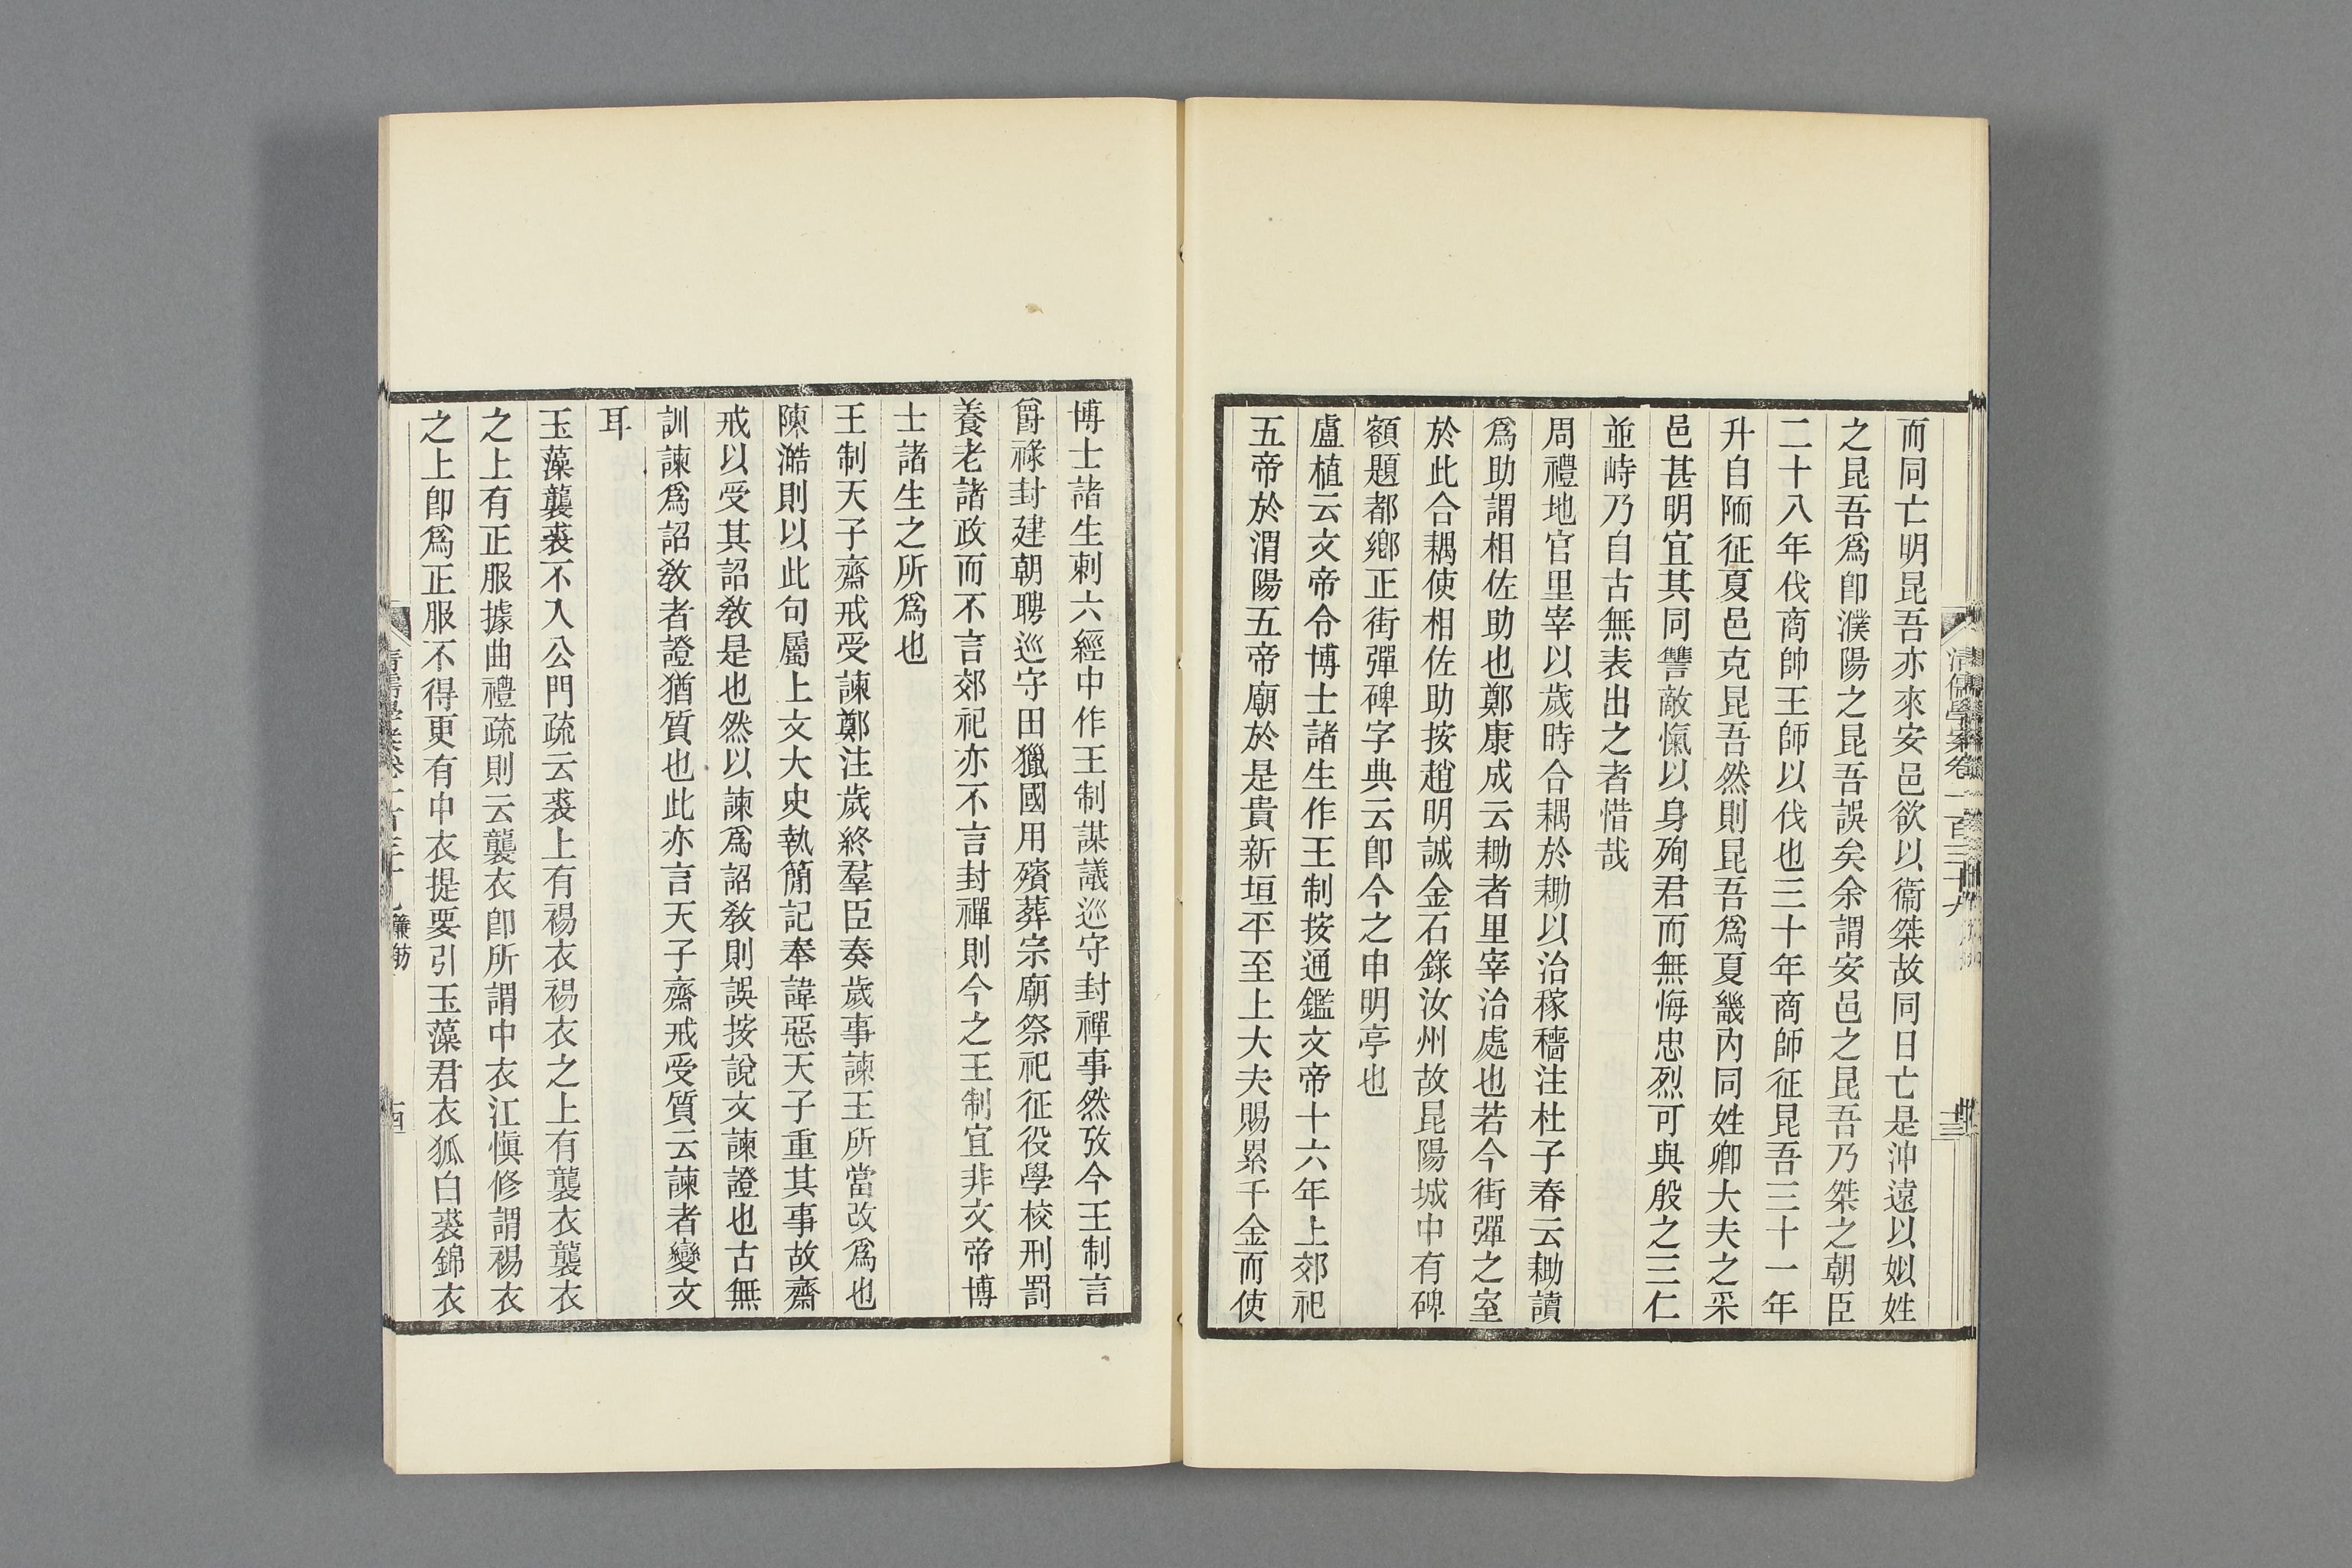 而同亡明昆吾亦來安邑欲以衞桀故同日亡是沖遠以姒姓
之昆吾爲卽濮陽之昆吾誤矣余謂安邑之昆吾乃桀之朝臣
二十八年伐商帥王師以伐也三十年商師征昆吾三十一年
升自陑征夏邑克昆吾然則昆吾爲夏畿內同姓卿大夫之采
邑甚明宜其同讐敵愾以身殉君而無悔忠烈可與殷之三仁
並峙乃自古無表出之者惜哉
周禮地官里宰以歲時合耦於耡以治稼穡注杜子春云耡讀
爲助謂相佐助也鄭康成云耡者里宰治處也若今街彈之室
於此合耦使相佐助按趙明誠金石錄汝州故昆陽城中有碑
額題都鄕正街彈碑字典云卽今之申明亭也
盧植云文帝令博士諸生作王制按通鑑文帝十六年上郊祀
五帝於渭陽五帝廟於是貴新垣平至上大夫賜累千金而使
清儒學案卷一百三十九
博士諸生刺六經中作王制謀議巡守封禪事然攷今王制言
爵祿封建朝聘巡守田獵國用殯葬宗廟祭祀征役學校刑罰
養老諸政而不言郊祀亦不言封禪則今之王制宜非文帝博
士諸生之所爲也
王制天子齋戒受諫鄭注歲終羣臣奏歲事諫王所當改爲也
陳澔則以此句屬上文大史執簡記奉諱惡天子重其事故齋
戒以受其詔敎是也然以諫爲詔敎則誤按說文諫證也古無
訓諫爲詔敎者證猶質也此亦言天子齋戒受質云諫者變文
耳
玉藻襲裘不入公門疏云裘上有裼衣裼衣之上有襲衣襲衣
之上有正服據曲禮疏則云襲衣卽所謂中衣江愼修謂裼衣
之上卽爲正服不得更有中衣提要引玉藻君衣狐白裘錦衣